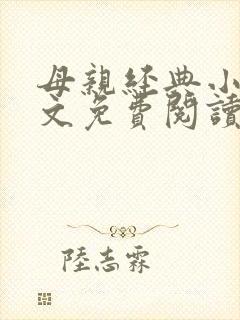 母親經典小
文免費閱讀
陸志霖